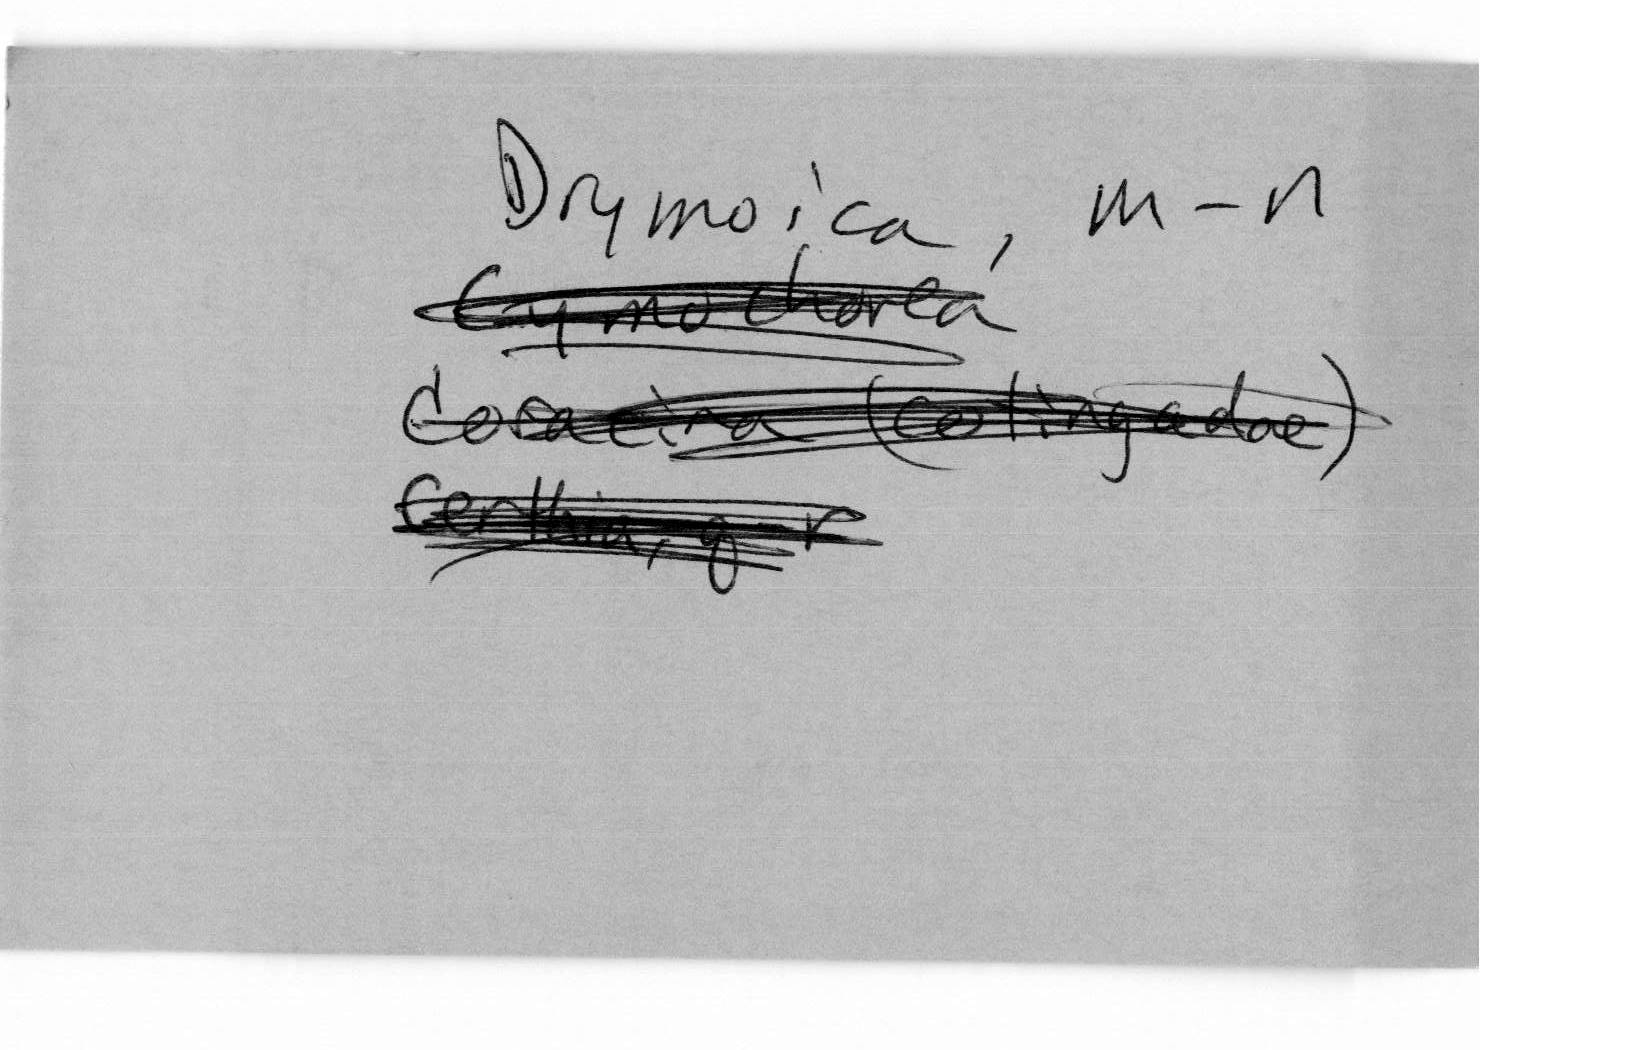 Drymoica, m-n
Cymochorea
Coracina (cotingadae)
Certhia, q-r